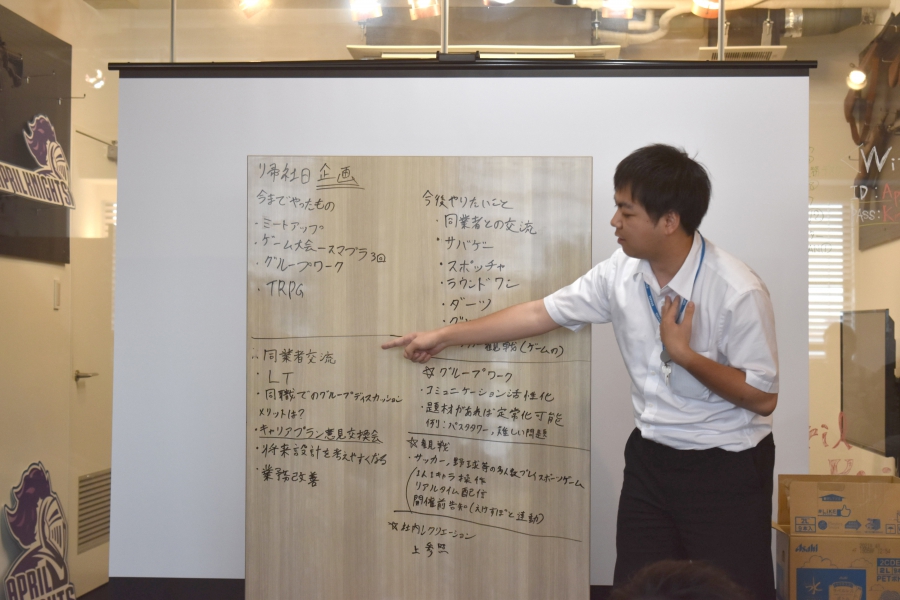 帰社日 企画
今までやったもの
・ミートアップ
・ゲーム大会ースマブラ3回
・グループワーク
・TRPG
今後やりたいこと
・同業者との交流
・サバゲー
・スポッチャ
・ラウンドワン
・ダーツ
観戦(ゲームの)
同業者交流
・LT
・同職でのグループディスカッション
メリットは?
・キャリアプラン意見交換会
・将来設計を考えやすくなる
・業務改善
☆グループワーク
・コミュニケーション活性化
・題材があれば定常化可能
例り:パスタタワー,難しい問題
☆観戦
・サッカー,野球等の多人数プレイスポーツゲーム
1人1キャラ操作
リアルタイム配信
開催前告知(えけすぽと連動)
☆社内レクリエーション
上参照
APRIL KNIGHTS
APRIL KNIGHTS
Wi
ID:Ap
PASS:K
Asahi